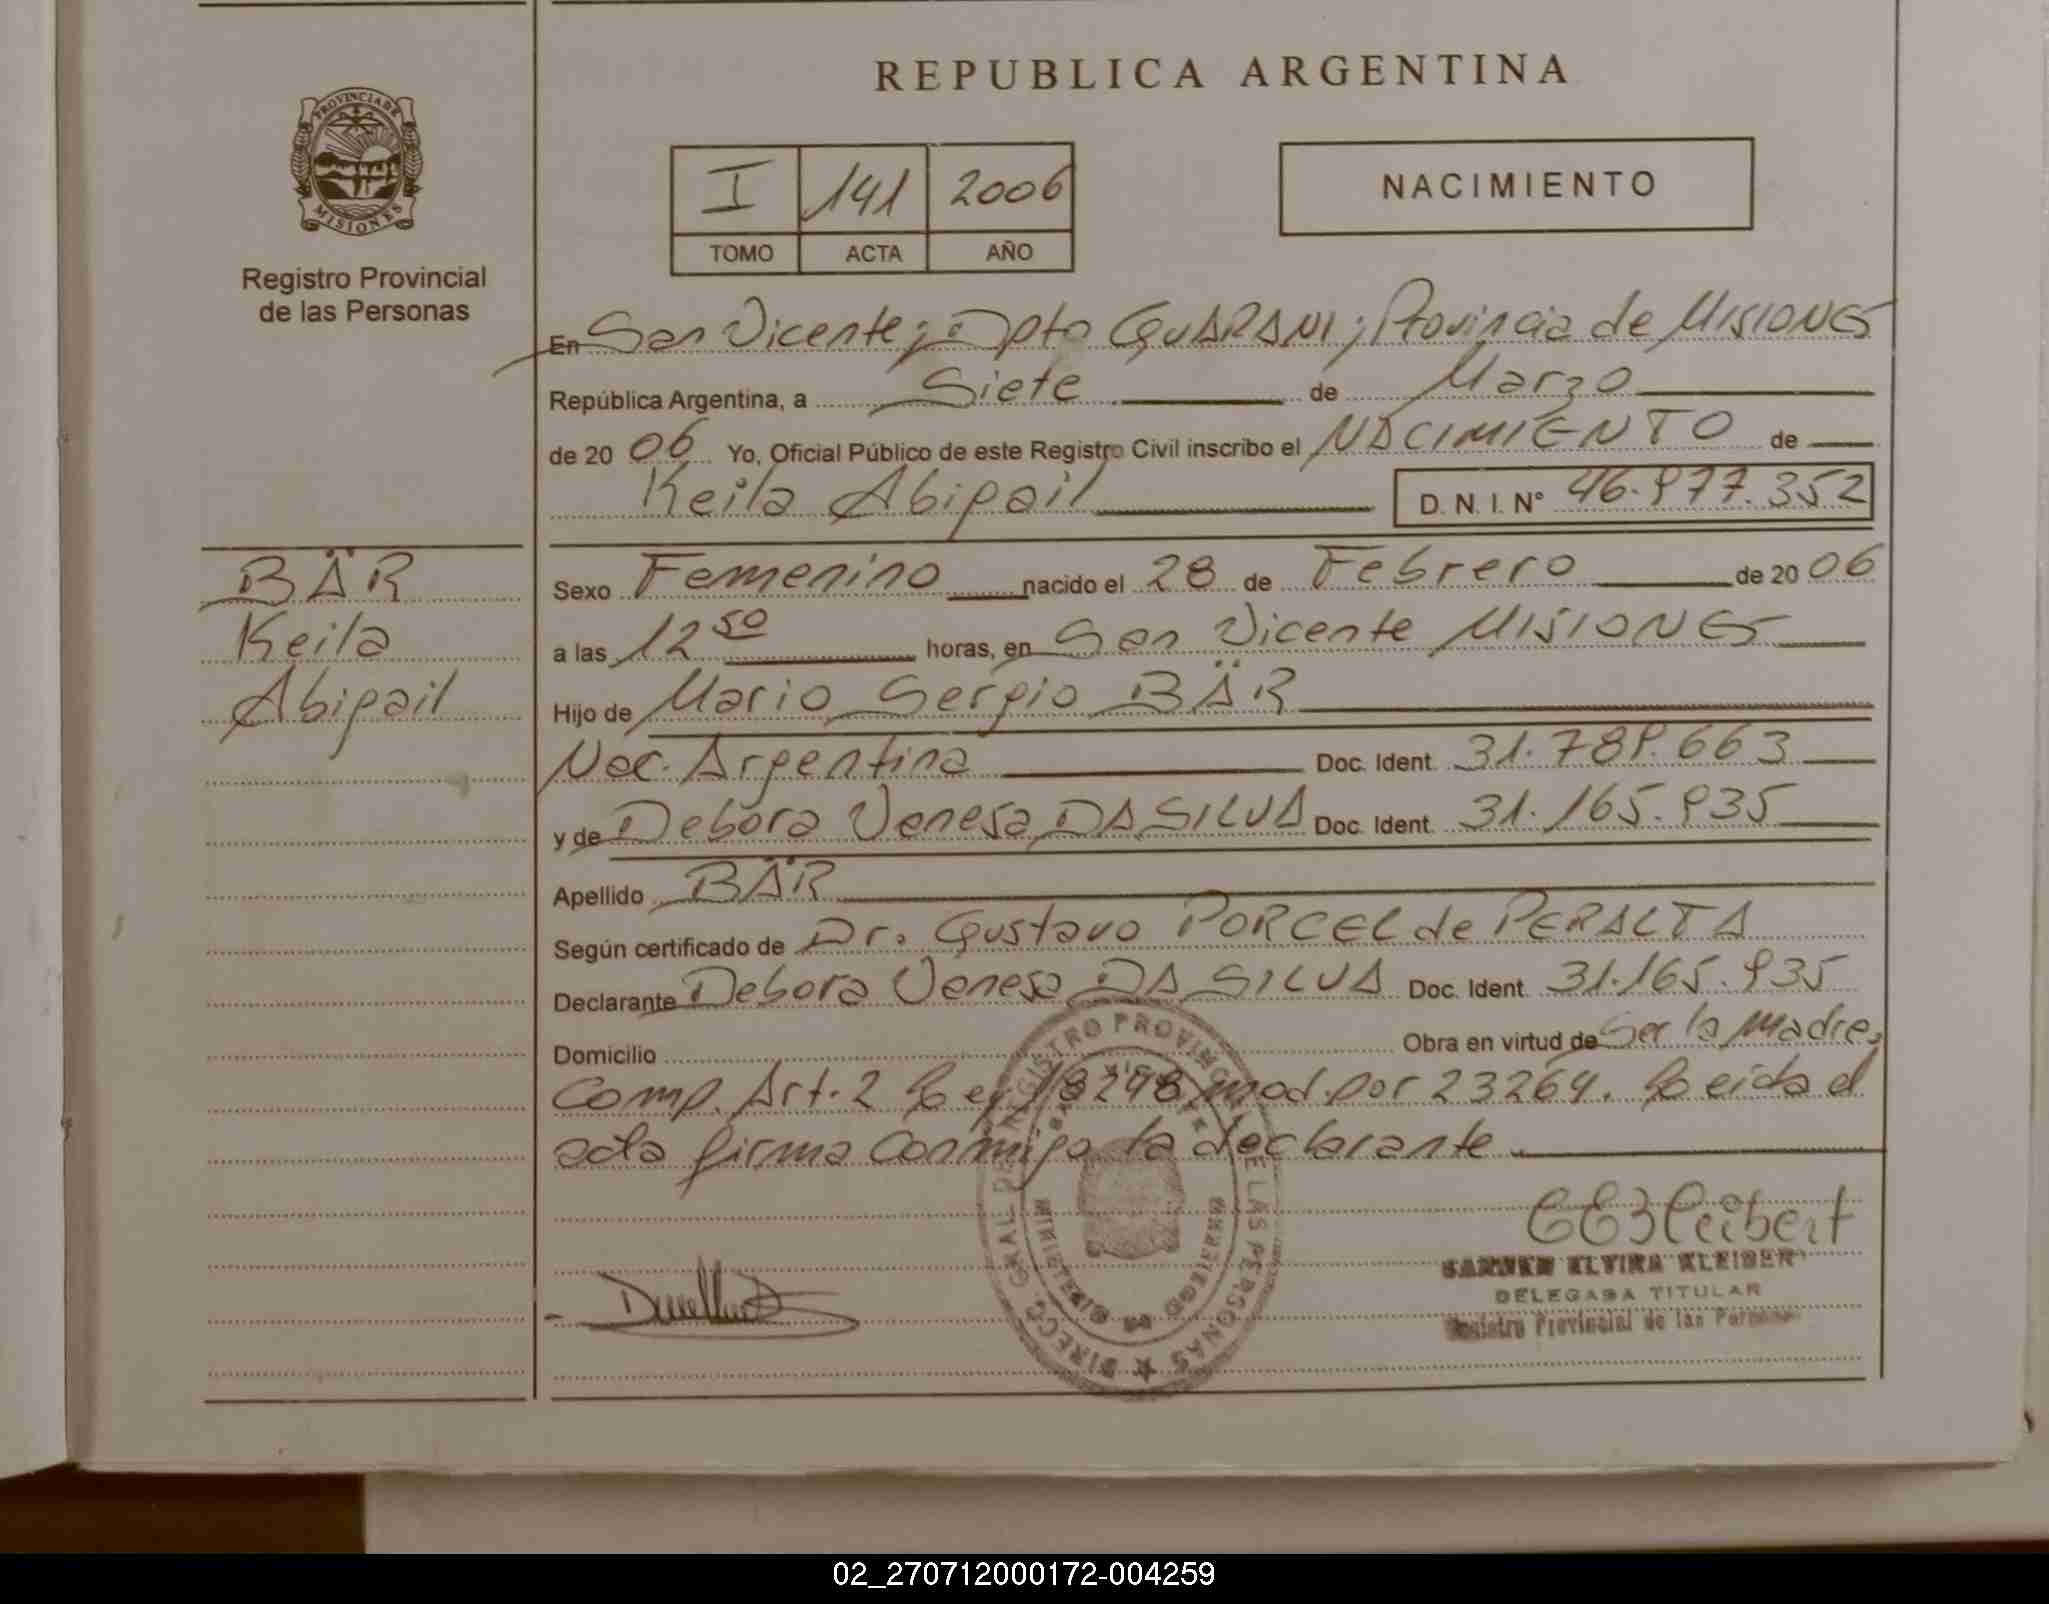 REPUBLICA ARGENTINA
PROVINCIA DE
MISIONES
Registro Provincial
de las Personas
I 141 2006
TOMO ACTA AÑO
NACIMIENTO
En San Vicente; Dpto GUARANI; Provincia de MISIONES
República Argentina, a Siete de Marzo
de 20 06 Yo, Oficial Público de este Registro Civil inscribo el NACIMIENTO de
Keila Abigail D. N. I. Nº 46.977.352
BÄR
Keila
Abigail
Sexo Femenino nacido el 28 de Febrero de 20 06
a las 12 50 horas, en San Vicente MISIONES
Hijo de Mario Sergio BÄR
Nac. Argentina Doc. Ident. 31.789.663
y de Debora Vanesa DA SILVA Doc. Ident. 31.165.935
Apellido BÄR
Según certificado de Dr. Gustavo PORCEL de PERALTA
Declarante Debora Vanesa DA SILVA Doc. Ident. 31.165.935
Domicilio Obra en virtud de Ser la madre.
Comp. Art. 2 Ley 18248 mod. por 23264. Leida el
acta firma conmigo la declarante
DIRECC. GRAL. DEL REGISTRO PROVINCIAL DE LAS PERSONAS
MINISTERIO DE GOBIERNO
ELVIRA KLEIBER
DELEGADA TITULAR
Registro Provincial de las Personas
02_270712000172-004259